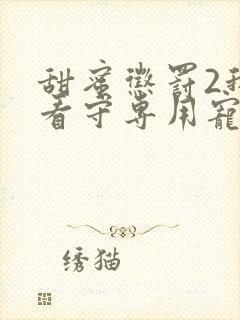 甜蜜惩罚2我
看守专用宠
绣猫